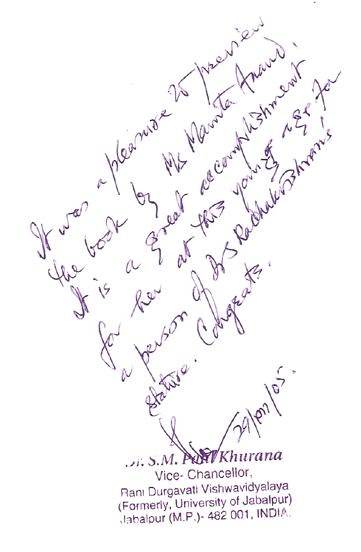 It was a pleasure to preview
the book by Ms Mamta Anand.
It is a great accomplishment
for her at this young age for
a person of Dr S Radhakrishnan's
stature. Congrats.
29/07/05.
Dr. S.M. Paul Khurana
Vice- Chancellor,
Rani Durgavati Vishwavidyalaya
(Formerly, University of Jabalpur)
Jabalpur (M.P.)- 482 001, INDIA.